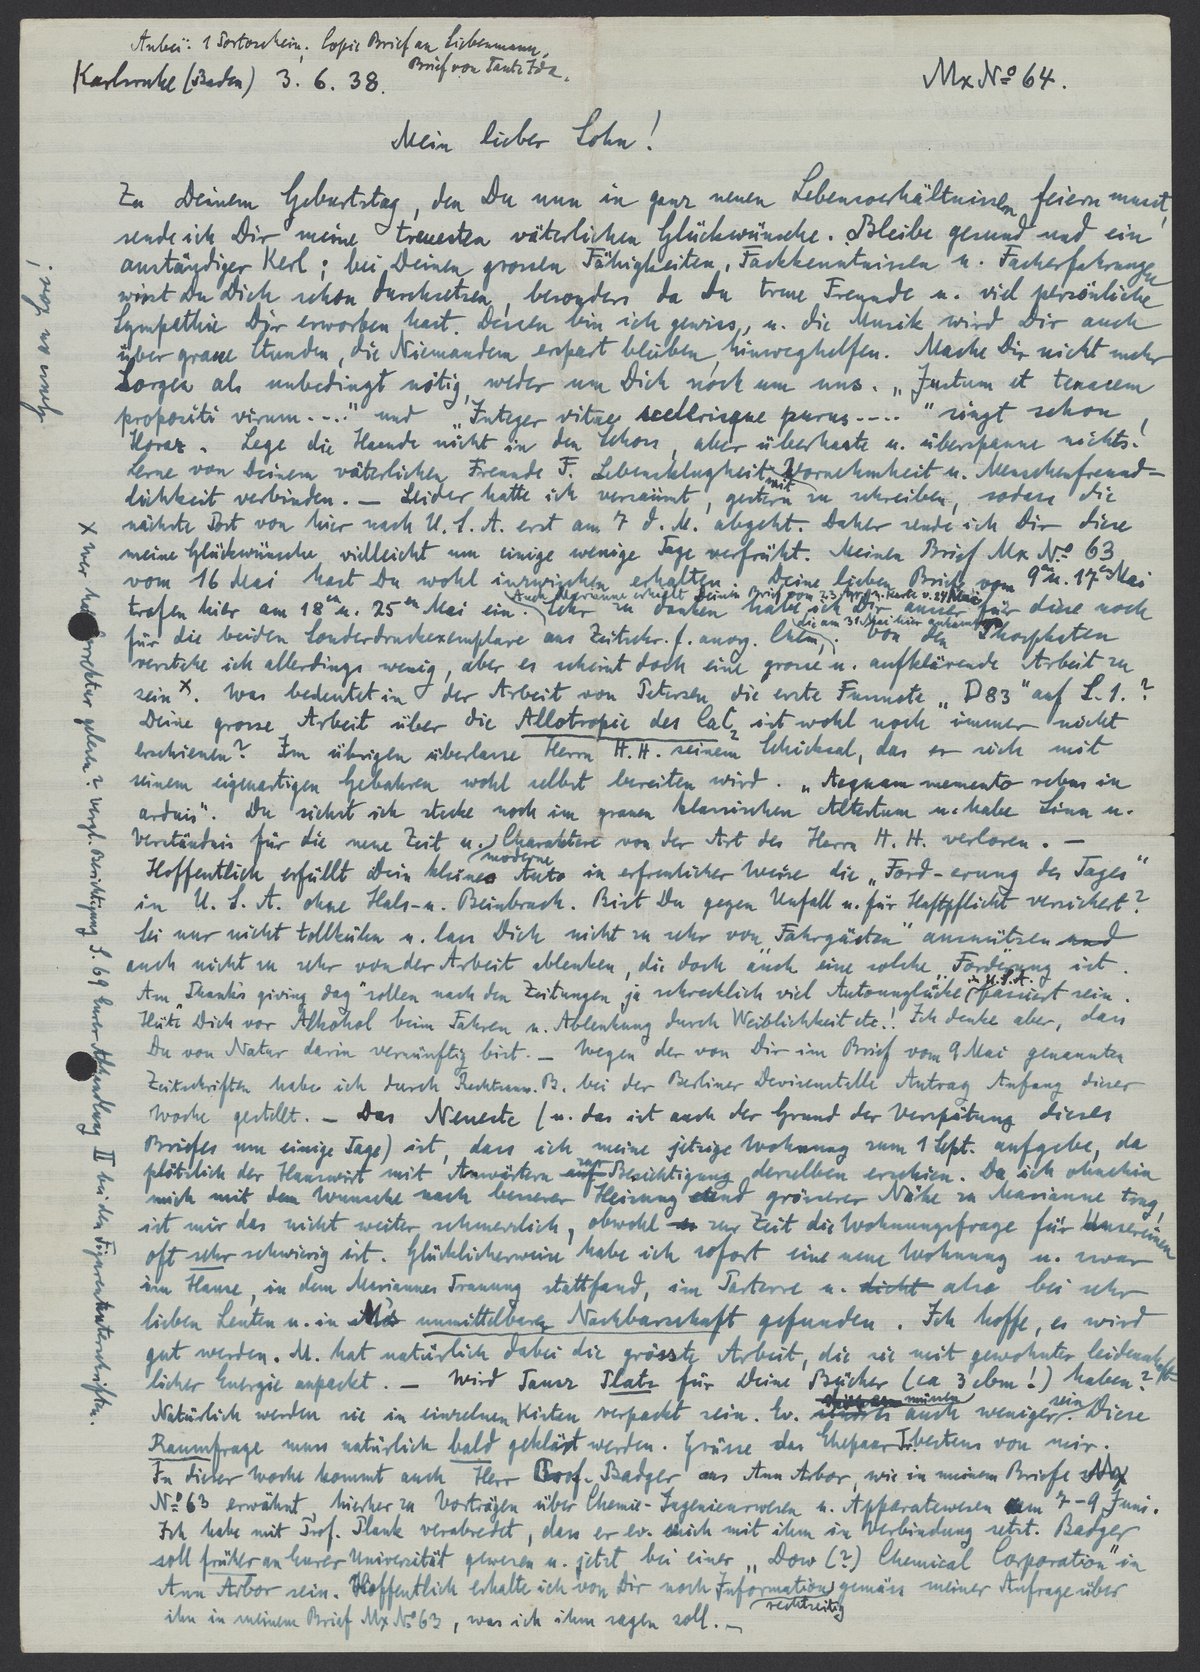 Anbei: 1 Portoschein, Copie Brief an Liebermann,
Brief von Tante Ida.
Karlsruhe (Baden) 3. 6. 38.
Mx No 64.
Mein lieber Sohn!
Zu Deinem Geburtstag, den Du nun in ganz neuen Lebensverhältnissen feiern musst,
sende ich Dir meine treuesten väterlichen Glückwünsche. Bleibe gesund und ein
anständiger Kerl; bei Deinen grossen Fähigkeiten, Fachkenntnissen u. Facherfahrungen
wirst Du Dich schon durchsetzen, besonders da Du treue Freunde u. viel persönliche
Sympathie Dir erworben hast. Dessen bin ich gewiss, u. die Musik wird Dir auch
über graue Stunden, die Niemandem erspart bleiben, hinweghelfen. Mache Dir nicht mehr
Sorgen als unbedingt nötig, weder um Dich noch um uns. „Justum et tenacem
propositi virum ...." und „Integer vitae scelerisque purus ...." singt schon
Horaz. Lege die Haende nicht in den Schoss, aber überhaste u. überspanne nichts!
Lerne von Deinem väterlichen Freunde F. Lebensklugheit mit Vornehmheit u. Menschenfreund-
lichkeit verbinden. — Leider hatte ich versäumt, gestern zu schreiben, sodass die
nächste Post von hier nach U. S. A. erst am 7 d. M. abgeht. Daher sende ich Dir diese
meine Glückwünsche vielleicht um einige wenige Tage verfrüht. Meinen Brief Mx No 63
vom 16 Mai hast Du wohl inzwischen erhalten. Deine lieben Briefe vom 9en u. 17en Mai
trafen hier am 18en u. 25en Mai ein. Auch Marianne erhielt Deinen Brief vom 23 u. Karte v. 24 Mai, die am 31 Mai hier ankamen. Sehr zu danken habe ich Dir ausser für diese noch
für die beiden Sonderdruckexemplare aus Zeitschr. f. anorg. Chem. Von den Phosphaten
verstehe ich allerdings wenig, aber es scheint doch eine grosse u. aufklärende Arbeit zu
sein x. Was bedeutet in der Arbeit von Petersen die erste Fussnote „D 83" auf S. 1.?
Deine grosse Arbeit über die Allotropie des CaC2 ist wohl noch immer nicht
erschienen? Im übrigen überlasse Herrn H. H. seinem Schicksal, das er sich mit
seinem eigenartigen Gebahren wohl selbst bereiten wird. „Aequam memento rebus in
arduis". Du siehst ich stecke noch im grauen klassischen Altertum u. habe Sinn u.
Verständnis für die neue Zeit u. moderne Charaktere von der Art des Herrn H. H. verloren. —
Hoffentlich erfüllt Dein kleines Auto in erfreulicher Weise die „Ford-erung des Tages"
in U. S. A. ohne Hals- u. Beinbruch. Bist Du gegen Unfall u. für Haftpflicht versichert?
Sei nur nicht tollkühn u. lass Dich nicht zu sehr von „Fahrgästen" ausnützen und
auch nicht zu sehr von der Arbeit ablenken, die doch auch eine solche „Forderung" ist.
Am „Thanks giving day" sollen nach den Zeitungen ja schrecklich viel Autounglücke in U.S.A. passiert sein.
Hüte Dich vor Alkohol beim Fahren u. Ablenkung durch Weiblichkeit etc.! Ich denke aber, dass
Du von Natur darin vernünftig bist. — Wegen der von Dir im Brief vom 9 Mai genannten
Zeitschriften habe ich durch Rechtsanw. B. bei der Berliner Devisenstelle Antrag Anfang dieser
Woche gestellt. — Das Neueste (u. das ist auch der Grund der Verspätung dieses
Briefes um einige Tage) ist, dass ich meine jetzige Wohnung zum 1 Sept. aufgebe, da
plötzlich der Hauswirt mit Anwärtern zur Besichtigung derselben erschien. Da ich ohnehin
mich mit dem Wunsche nach besserer Heizung und grösserer Nähe zu Marianne trug,
ist mir das nicht weiter schmerzlich, obwohl zur Zeit die Wohnungsfrage für Unsereinen
oft sehr schwierig ist. Glücklicherweise habe ich sofort eine neue Wohnung u. zwar
im Hause, in dem Mariannes Trauung stattfand, im Parterre u. dicht also bei sehr
lieben Leuten u. in M's unmittelbarer Nachbarschaft gefunden. Ich hoffe, es wird
gut werden. M. hat natürlich dabei die grösste Arbeit, die sie mit gewohnter leidenschaft-
licher Energie anpackt. — Wird Tausz Platz für Deine Bücher (ca 3 cbm!) haben?
Natürlich werden sie in einzelnen Kisten verpackt sein. Ev. müssen auch weniger sein. Diese
Raumfrage muss natürlich bald geklärt werden. Grüsse das Ehepaar T. bestens von mir.
In dieser Woche kommt auch Herr Prof. Badger aus Ann Arbor, wie in meinem Briefe Mx
No 63 erwähnt, hierher zu Vorträgen über Chemie-Ingenieurwesen u. Apparatewesen am 7–9 Juni.
Ich habe mit Prof. Plank verabredet, dass er ev. mich mit ihm in Verbindung setzt. Badger
soll früher an Eurer Universität gewesen u. jetzt bei einer „Dow (?) Chemical Corporation" in
Ann Arbor sein. Hoffentlich erhalte ich von Dir noch rechtzeitig Information gemäss meiner Anfrage über
ihn in meinem Brief Mx No 63, was ich ihm sagen soll. —
x Wer hat Korrektur gelesen? vergl. Berichtigung S. 69 Eurer Abhandlung II bei den Figurenunterschriften.